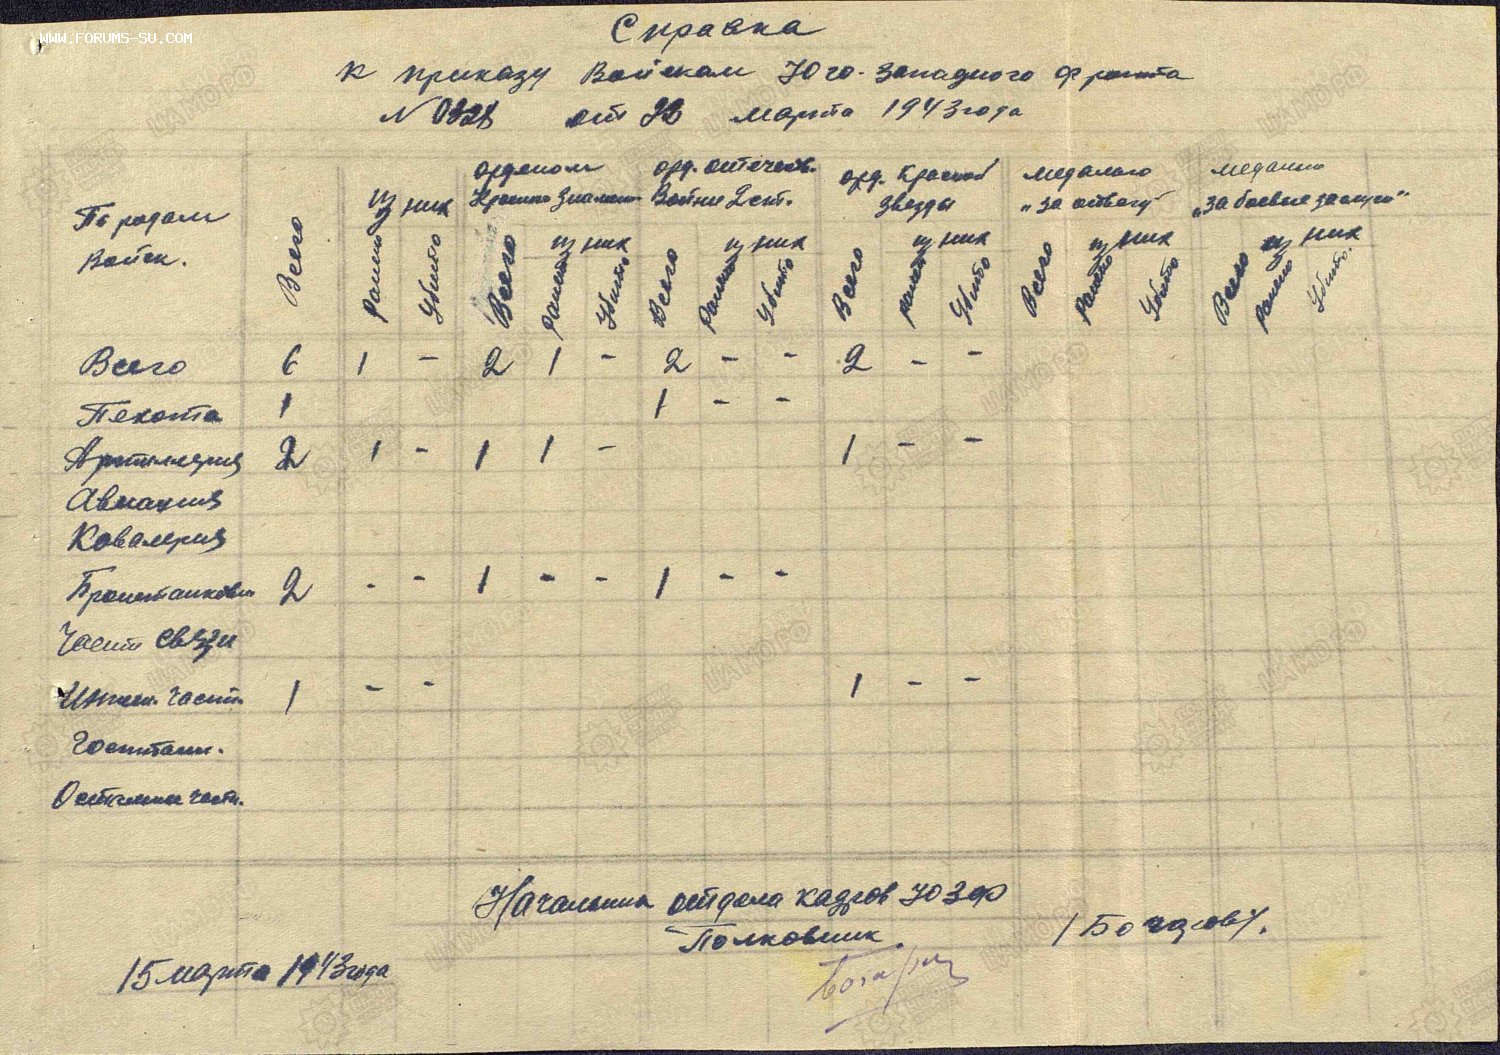 WWW.FORUMS-SU.COM
Справка
к приказу Войскам Юго-Западного фронта
N 0328 от марта 1943 года
По родам Войск.
Всего
из них
Ранено
Убито
орденом Красное Знамен
Всего
из них
Ранено
Убито
орд. отечеств. Войны 2 ст.
Всего
из них
Ранено
Убито
орд. Красной звезды
Всего
из них
ранено
Убито
медалью "за отвагу"
Всего
из них
Ранено
Убито
медалью "за боевые заслуги"
Всего
из них
Ранено
Убито.
Всего 6 1 - 2 1 - 2 - - 2 - -
Пехота 1 1 - -
Артиллерия 2 1 - 1 1 - 1 - -
Авиация
Ковалерия
Бронетанков 2 - - 1 - - 1 - -
Част связи
Инжен. част. 1 - - 1 - -
Госпитали.
Остальные части.
Начальник отдела кадров ЮЗФ
Полковник /Бочаров/.
15 марта 1943 года
ЦАМО РФ